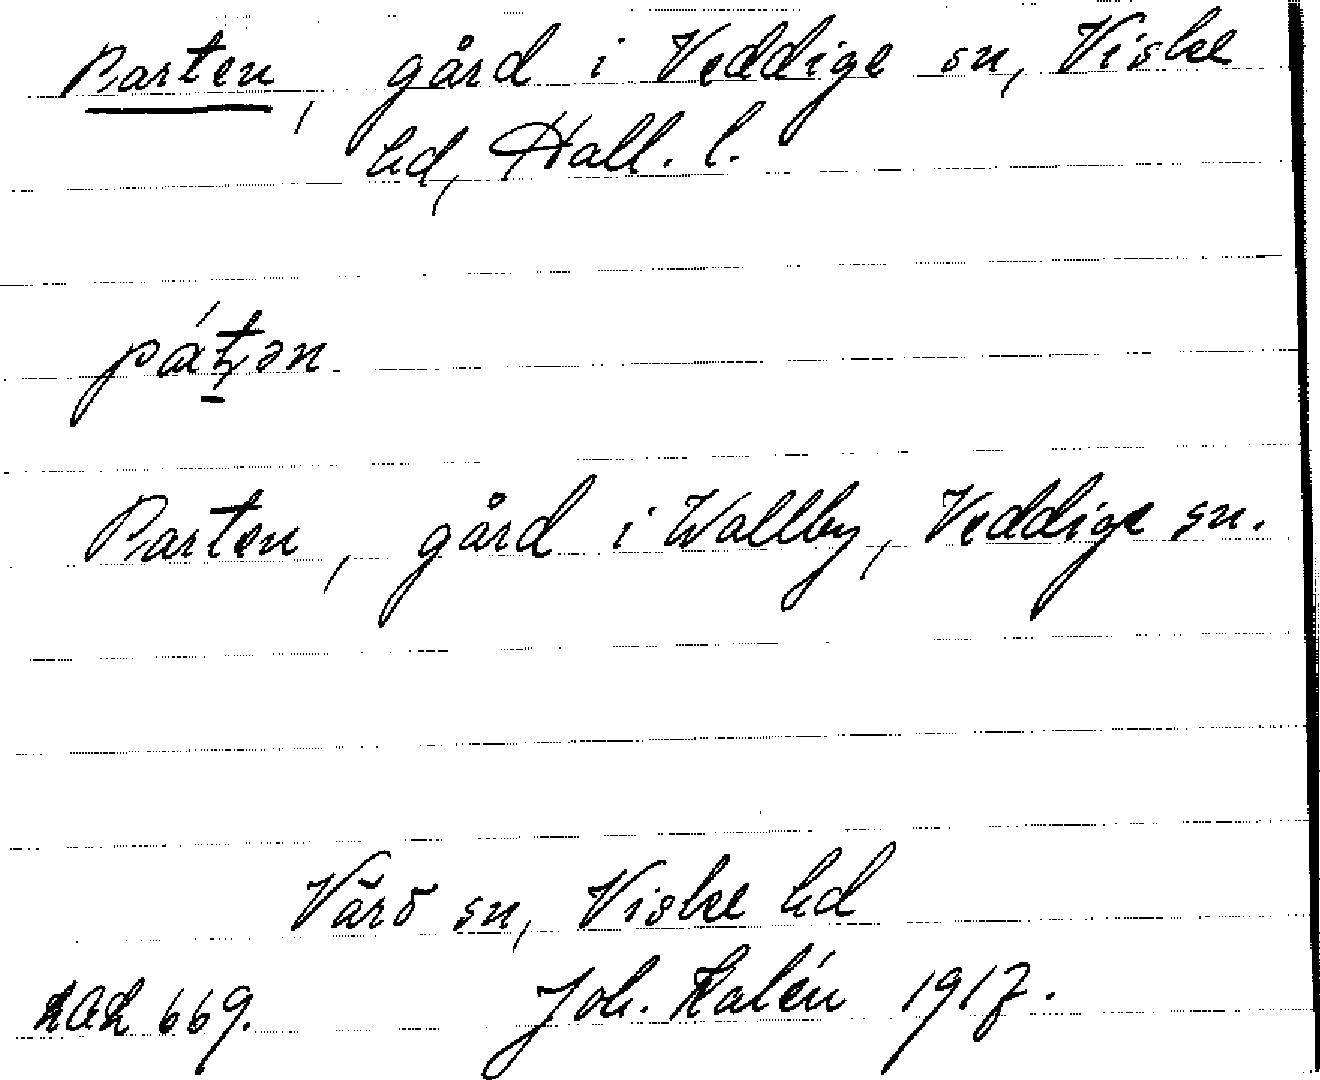 Parten, gård i Veddige sn, Viske
hd, Hall. l.
pát̠ən
Parten, gård i Wallby, Veddige sn.
Värö sn, Viske hd
669. Joh. Kalén 1917.